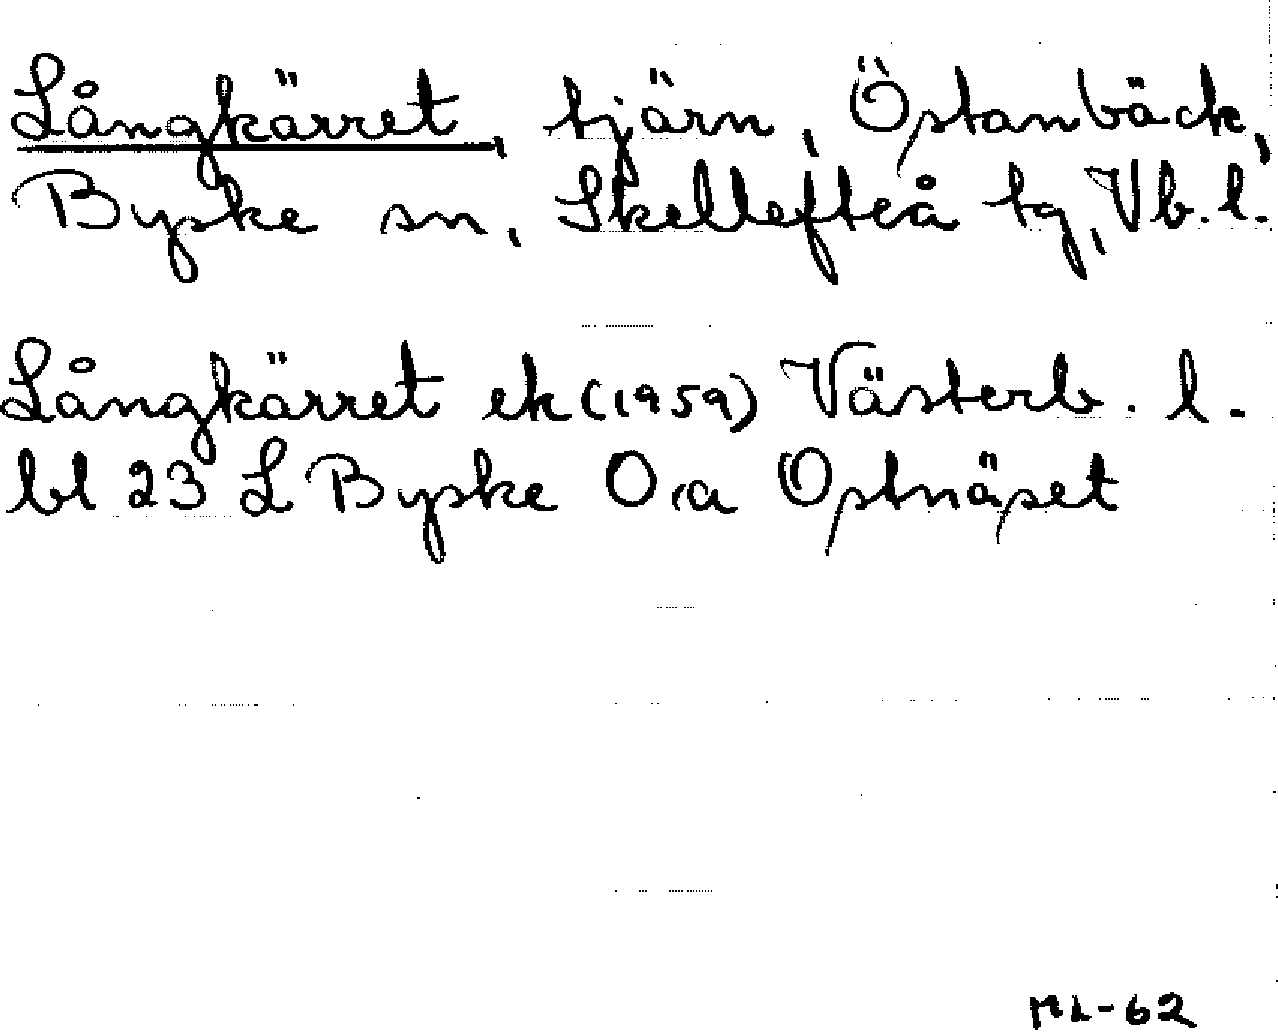 Långkärret, tjärn, Östanbäck,
Byske sn, Skellefteå tg, Vb. l.
Långkärret ek (1959) Västerb. l.
bl 23 L Byske O.a Ostnäset
ML-62